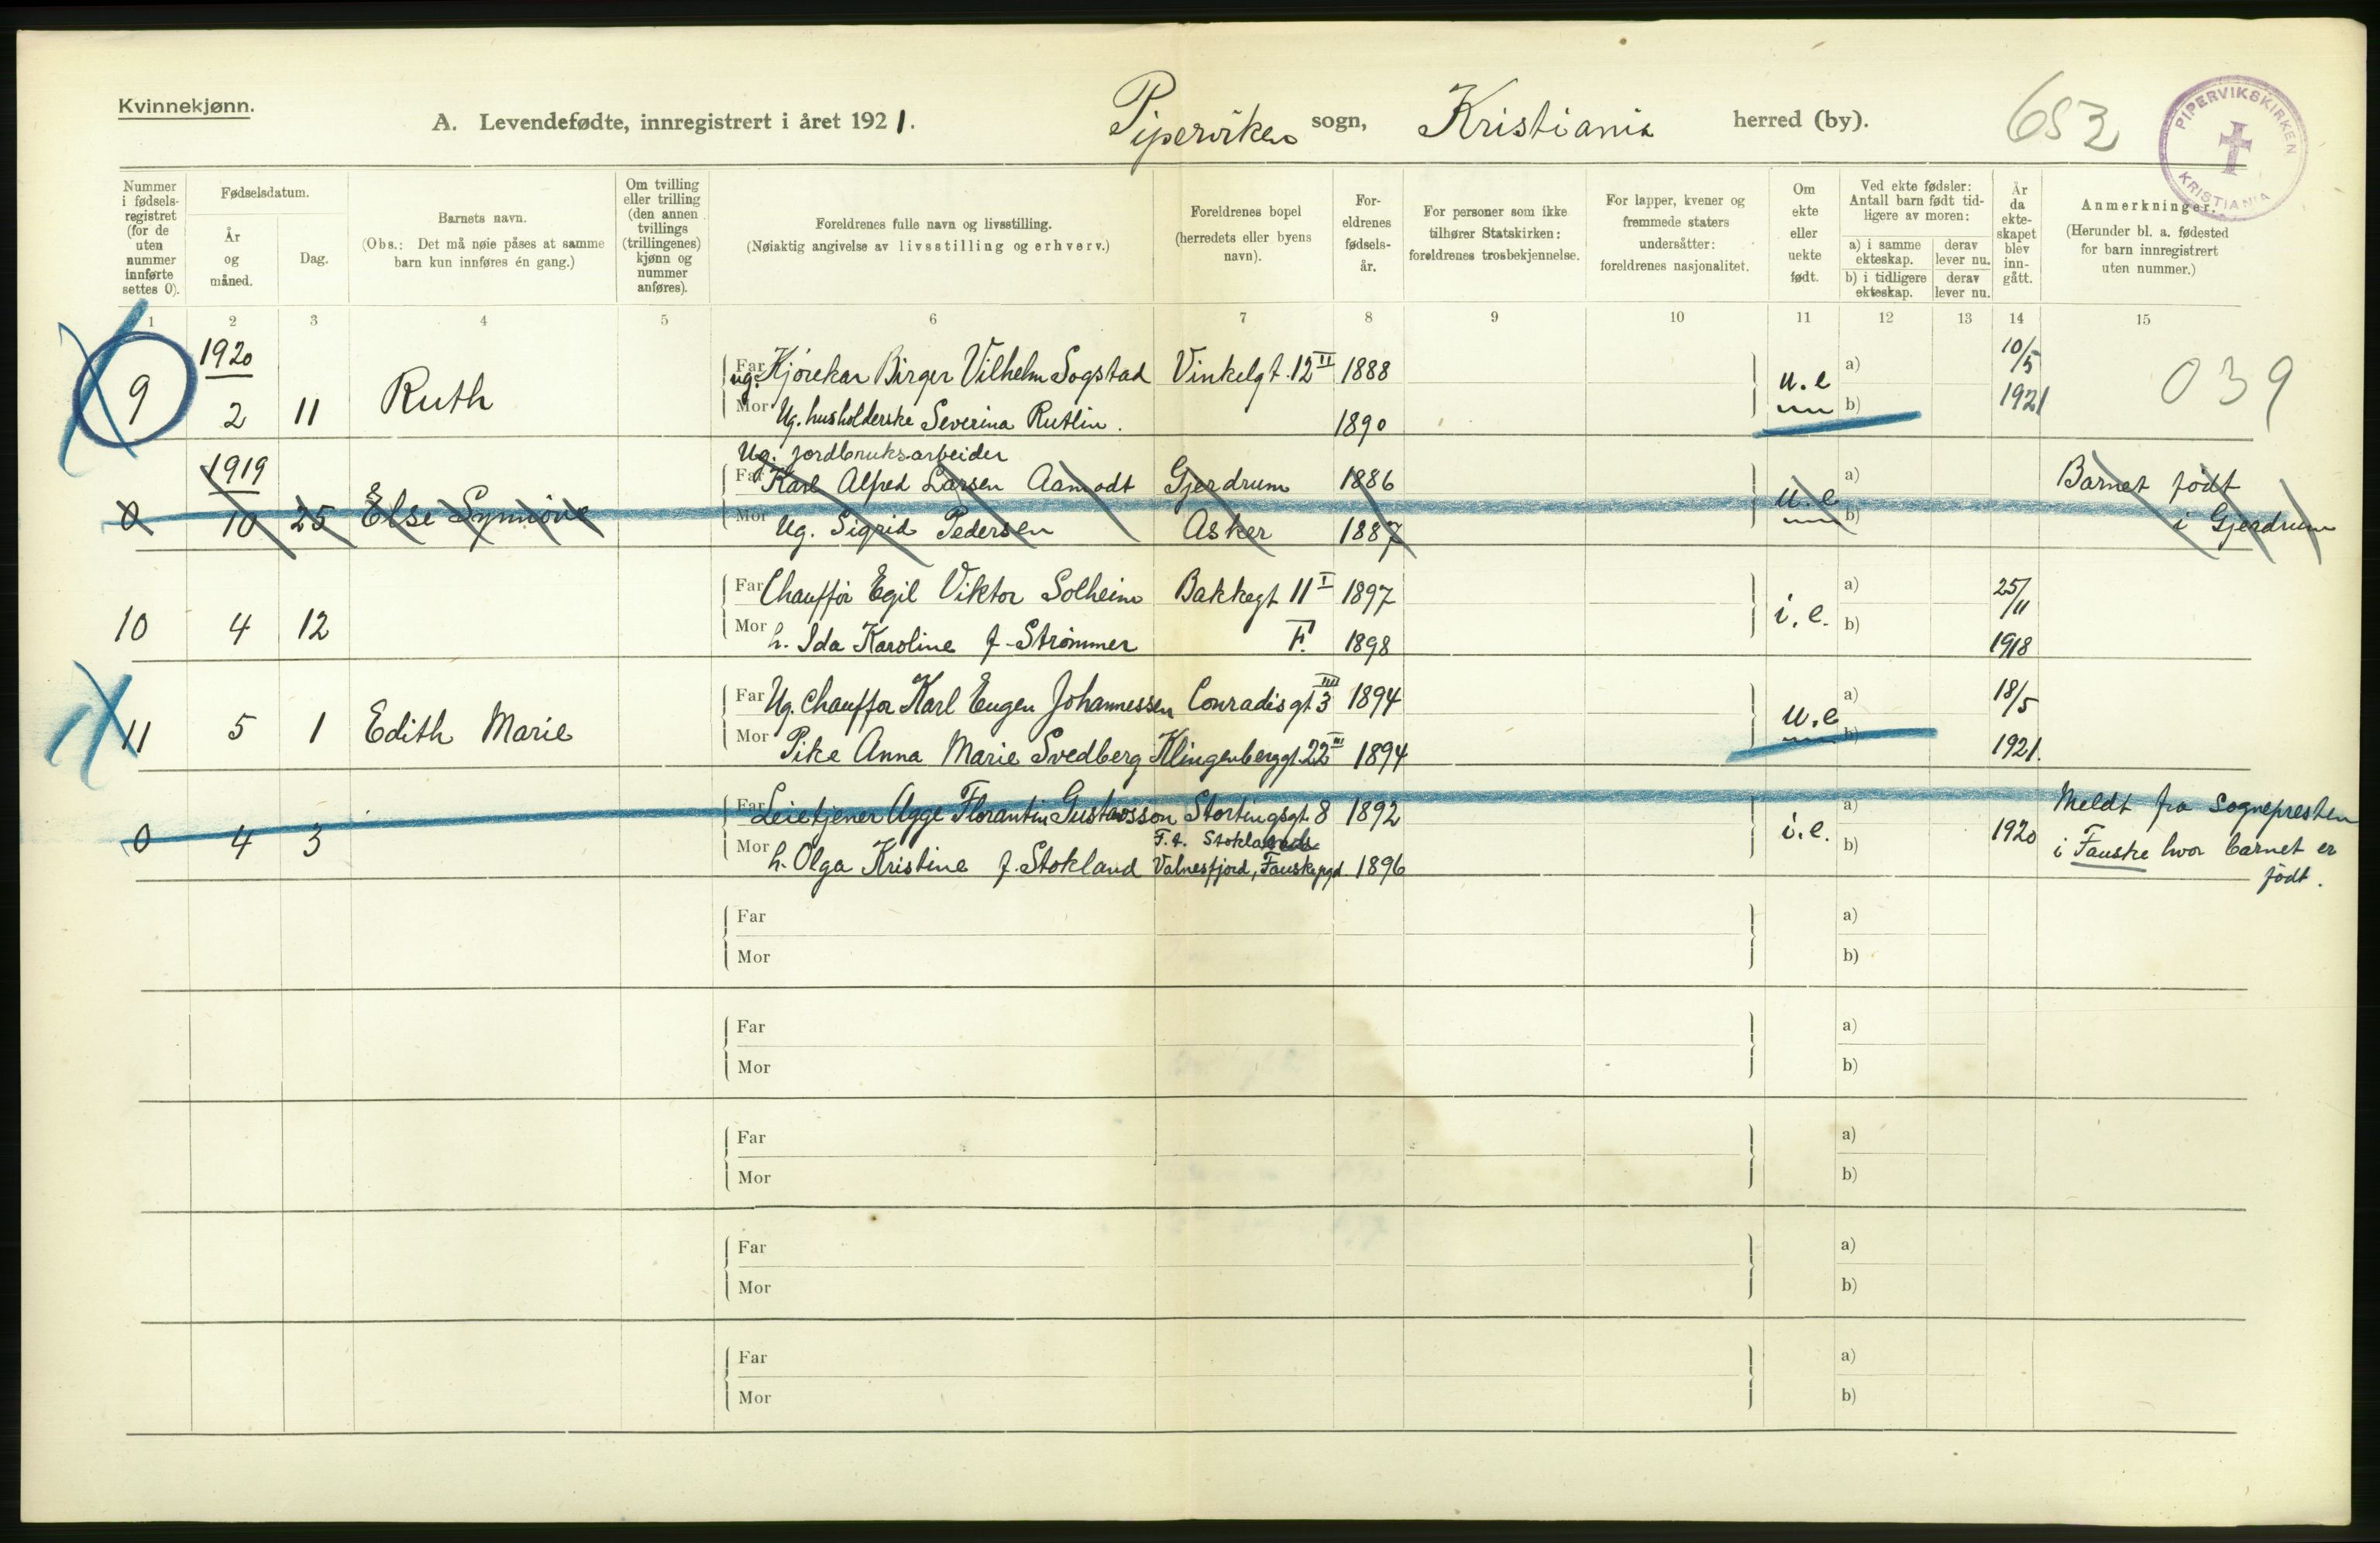 Kvinnekjønn.
A. Levendefødte, innregistrert i året 1921. Piperviken sogn, Kristiania herred (by). 652
PIPERVIKSKIRKEN KRISTIANIA
Nummer i fødsels-registret (for de uten nummer innførte settes 0).
Fødselsdatum.
År og måned.
Dag.
Barnets navn.
(Obs.: Det må nøie påses at samme barn kun innføres én gang.)
Om tvilling eller trilling (den annen tvillings (trillingenes) kjønn og nummer anføres).
Foreldrenes fulle navn og livsstilling.
(Nøiaktig angivelse av livsstilling og erhverv.)
Foreldrenes bopel (herredets eller byens navn).
For-eldrenes fødsels-år.
For personer som ikke tilhører Statskirken: foreldrenes trosbekjennelse.
For lapper, kvener og fremmede staters undersåtter: foreldrenes nasjonalitet.
Om ekte eller uekte født.
Ved ekte fødsler: Antall barn født tid-ligere av moren:
a) i samme ekteskap.
derav lever nu.
b) i tidligere ekteskap.
derav lever nu.
År da ekte-skapet blev inn-gått.
Anmerkninger.
(Herunder bl. a. fødested for barn innregistrert uten nummer.)
1 2 3 4 5 6 7 8 9 10 11 12 13 14 15
1920 Far ug. Kjørekar Birger Vilhelm Sogstad Vinkelgt. 12 II 1888 a) 10/5
9 2 11 Ruth Mor Ug. husholderske Severina Rutlin. 1890 u.e b) 1921 039
Ug. jordbruksarbeider
1919 Far Karl Alfred Larsen Aamodt Gjerdrum 1886 a) Barnet født
0 10 25 Else Synnöve Mor Ug. Sigrid Pedersen Asker 1887 u.e b) i Gjerdrum
Far Chauffør Egil Viktor Solheim Bakkegt 11 I 1897 a) 25/11
10 4 12 Mor h. Ida Karoline f. Strømmer F. 1898 i.e. b) 1918
Far Ug. Chauffør Karl Eugen Johannessen Conradisgt 3 III 1894 a) 18/5
11 5 1 Edith Marie Mor Pike Anna Marie Svedberg Klingenberggt. 22 III 1894 u.e b) 1921.
Far Leietjener Agge Florantin Gustavsson Stortingsgt. 8 1892 a) Meldt fra Sognepresten
0 4 3 F.t. Stokland i.e. 1920 i Fauske hvor barnet er
Mor h. Olga Kristine f. Stokland Valnesfjord, Fauske pgd 1896 b) født.
Far a)
Mor b)
Far a)
Mor b)
Far a)
Mor b)
Far a)
Mor b)
Far a)
Mor b)